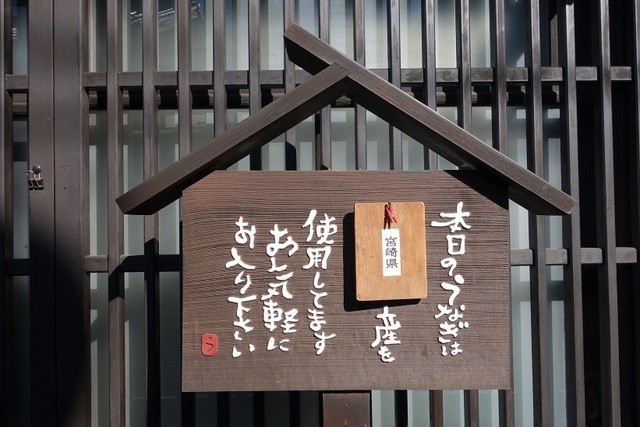 本日のうなぎは
宮崎県
産を
使用してます
お気軽に
お入り下さい
う